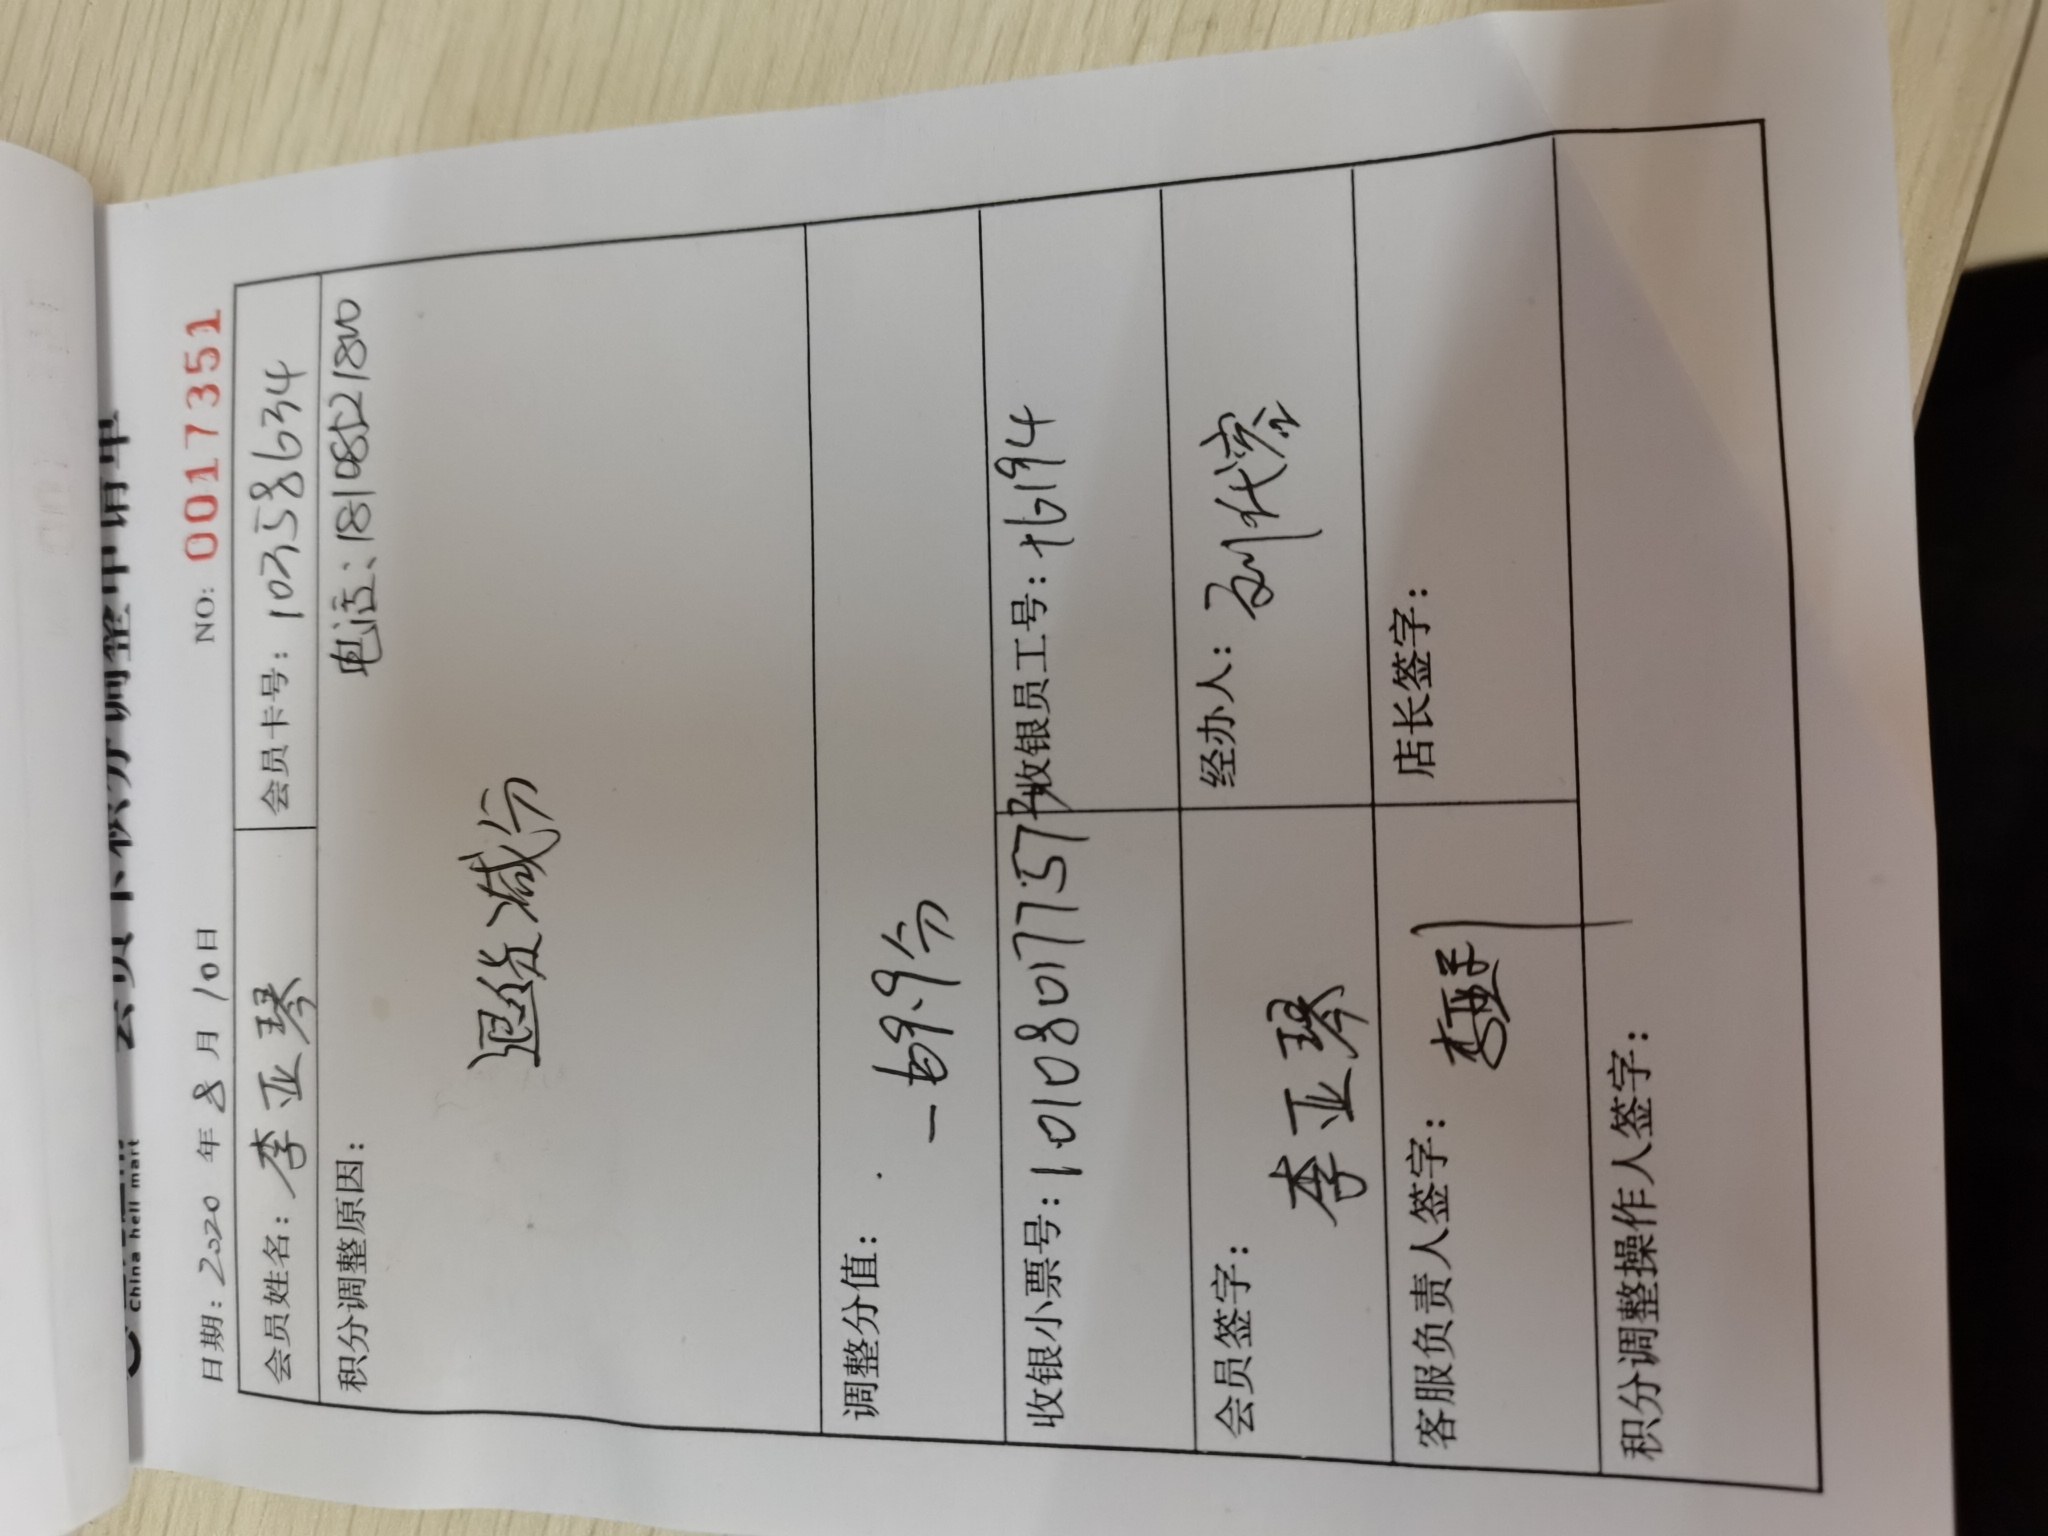 会员卡积分调整申请单
China hell mart
日期: 2020 年 8 月 10 日 NO: 0017351
会员姓名: 李亚琴 会员卡号: 10358634
积分调整原因: 电话: 18108521800
退货减分
调整分值: -69.9分
收银小票号: 1010801775 收银员工号: 16194
会员签字: 李亚琴 经办人:
客服负责人签字: 店长签字:
积分调整操作人签字: